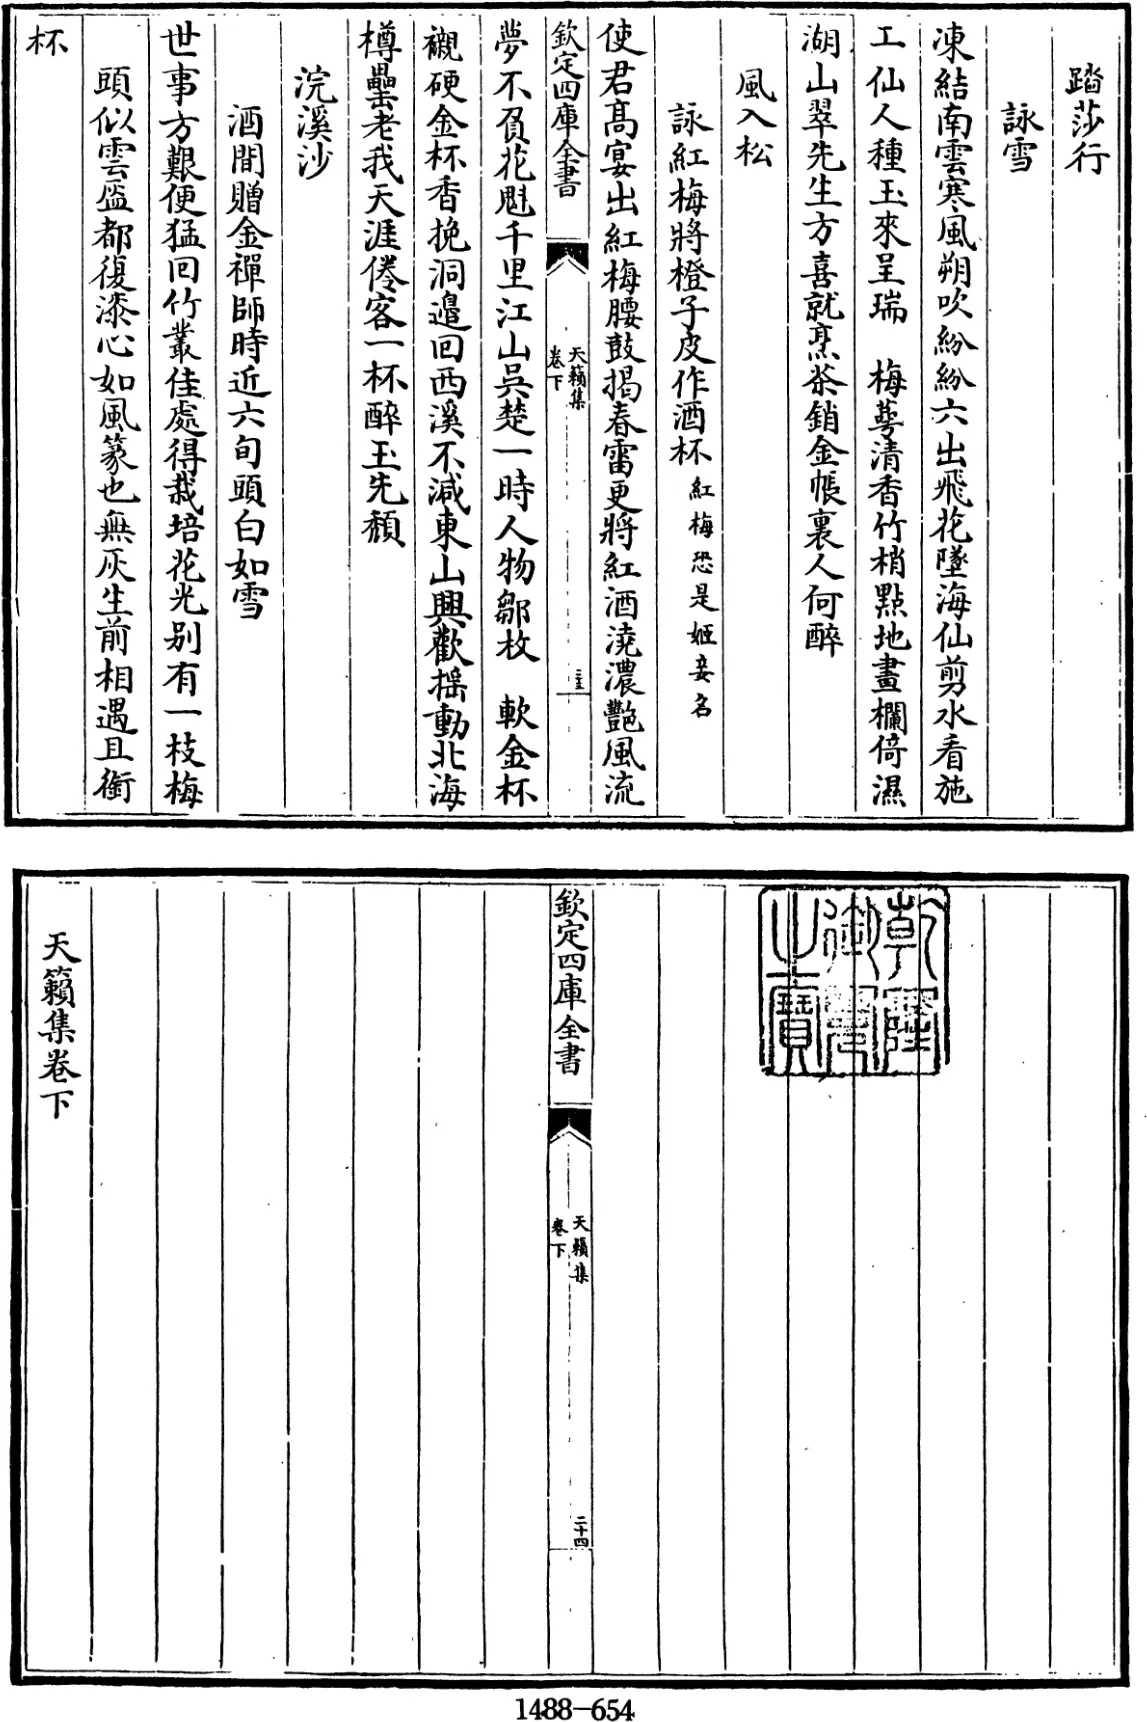 踏莎行
詠雪
凍結南雲寒風朔吹紛紛六出飛花墜海仙剪水看施
工仙人種玉來呈瑞　梅萼清香竹梢點地畫欄倚濕
湖山翠先生方喜就烹茶銷金帳裏人何醉
風入松
詠紅梅將橙子皮作酒杯紅梅恐是姬妾名
使君高宴出紅梅腰鼓揭春雷更將紅酒澆濃艷風流
欽定四庫全書
天籟集
卷下
夢不負花魁千里江山吳楚一時人物鄒枚　軟金杯
襯硬金杯香挽洞邉回西溪不減東山興歡摇動北海
樽罍老我天涯倦客一杯醉玉先頹
浣溪沙
酒間贈金禪師時近六旬頭白如雪
世事方艱便猛回竹叢佳處得栽培花光别有一枝梅
頭似雲盔都復漆心如風篆也無灰生前相遇且銜
杯
乾隆御覽之寶
欽定四庫全書
天籟集
卷下
二十四
天籟集卷下
1488-654